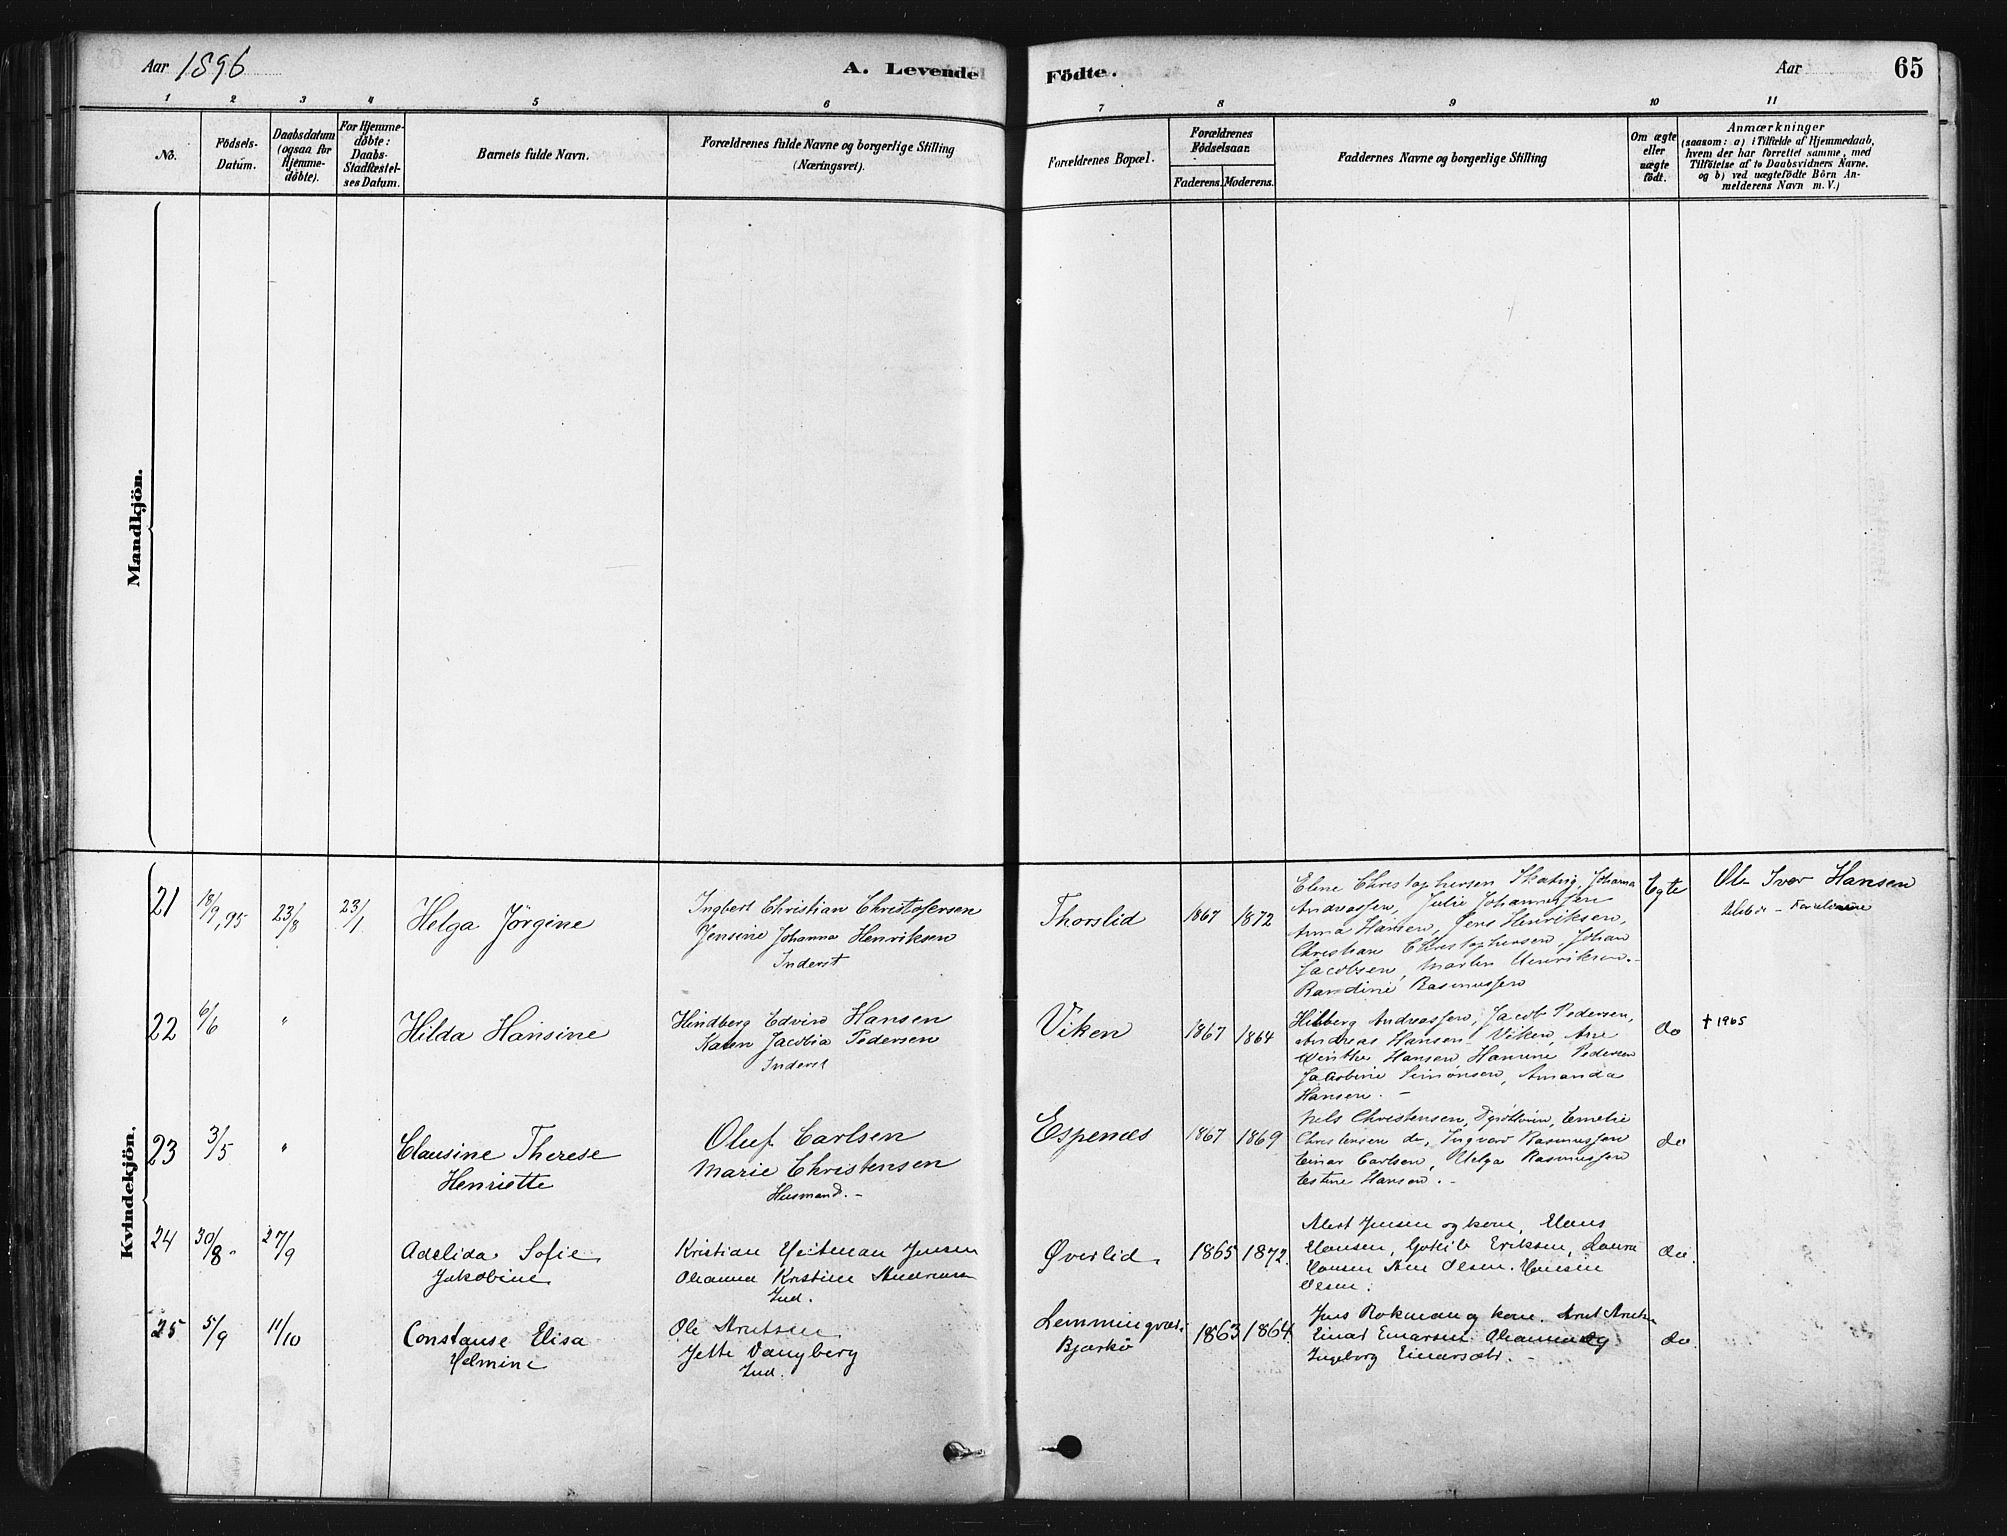 Aar 1896
A. Levende Födte.
Aar
65
1 2 3 4 5 6 7 8 9 10 11
No.
Födsels-
Datum.
Daabsdatum
(ogsaa for
Hjemme-
döbte).
For Hjemme-
döbte:
Daabs-
Stadfæstel-
ses Datum.
Barnets fulde Navn.
Forældrenes fulde Navne og borgerlige Stilling
(Næringsvei).
Forældrenes Bopæl.
Forældrenes
Födselsaar.
Faderens. Moderens.
Faddernes Navne og borgerlige Stilling
Om ægte
eller
uægte
födt.
Anmærkninger
(saasom: a) i Tilfælde af Hjemmedaab,
hvem der har forrettet samme, med
Tilföielse af to Daabsvidners Navne.
og b) ved uægtefödte Börn An-
melderens Navn m. V.)
Mandkjön.
Kvindekjön.
21 18/9, 95 23/8 23/1
Helga Jörgine
Ingbert Christian Christofersen
Jensine Johanna Henriksen
Inderst
Thorslid
1867 1872
Elene Christophersen, Johanna
Andreassen, Julie Johannessen
Anna Hansen, Jens Henriksen,
Christian Christophersen, Johan
Jacobsen, Martin Henriksen.
Rasmussen
Egte
Ole Iver Hansen
22 6/6 "
Hilda Hansine
Hindberg Edvin Hansen
Karen Jacobia Pedersen
Inderst
Viken
1867 1864
Hilberg Andreassen, Jacob Pedersen,
Andreas Hansen Viken, Ane
Hansen, Pedersen
Jacobine Simonsen, Amanda
Hansen. -
do
† 1965
23 3/5 "
Clausine Therese
Henriette
Oluf Carlsen
Marie Christensen
Husmand. -
Espenæs
1867 1869
Nels Christensen, Emelie
Christensen do, Ingvard Rasmussen
Einar Carlsen, Helga Rasmussen
Estine Hansen. -
do
24 30/8 27/9
Adelida Sofie
Jakobine
Kristian Heitman Jensen
Oleanna Kristine
Ind.
Øverlid
1865 1872.
Jensen og kone, Hans
Hansen, Eriksen, Laura
Hansen Olsen,
Olsen.
do.
25 5/9 11/10
Constanse Elisa
Helmine
Ole Arntsen
Jette Vangberg
Ind.
Lemmingvær
Bjarkö
1863 1864
Jens og kone, Arnt
Einar Einarsen,
Ingeborg
do.